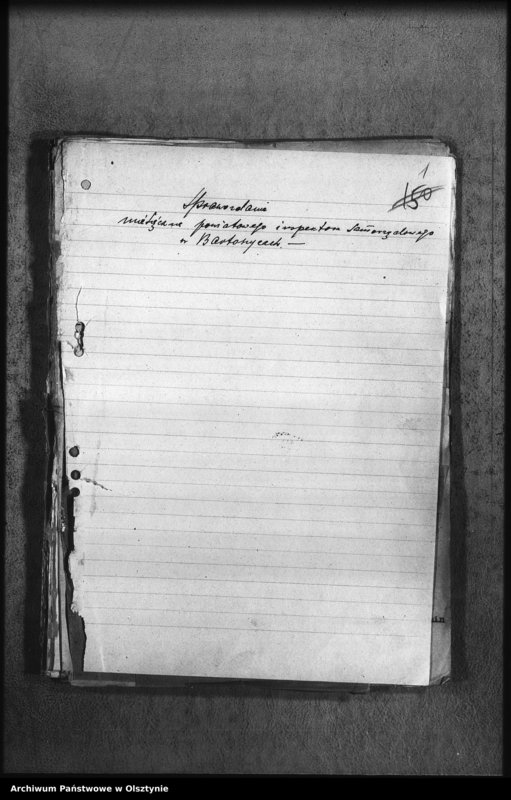 1
150
Sprawozdania
miesięczne powiatowego inspektora samorządowego
w Bartoszycach. —
Archiwum Państwowe w Olsztynie